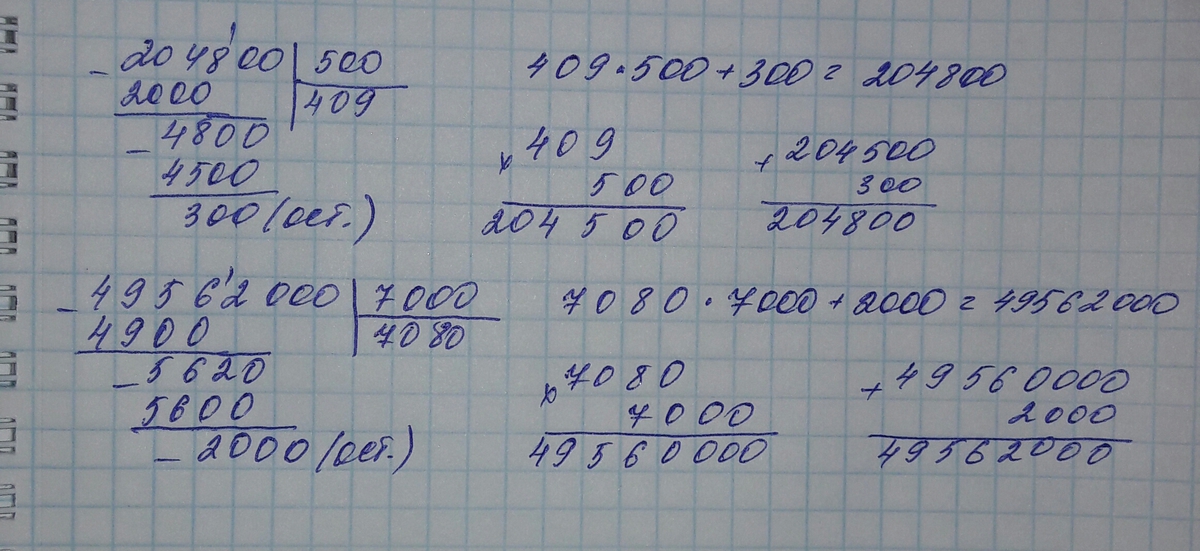 - 204800 | 500
2000 | 409
- 4800
4500
300 (ост.)
409 · 500 + 300 = 204800
x 409
500
204500
+ 204500
300
204800
- 49562000 | 7000
4900 | 7080
- 5620
5600
- 2000 (ост.)
7080 · 7000 + 2000 = 49562000
x 7080
7000
49560000
+ 49560000
2000
49562000